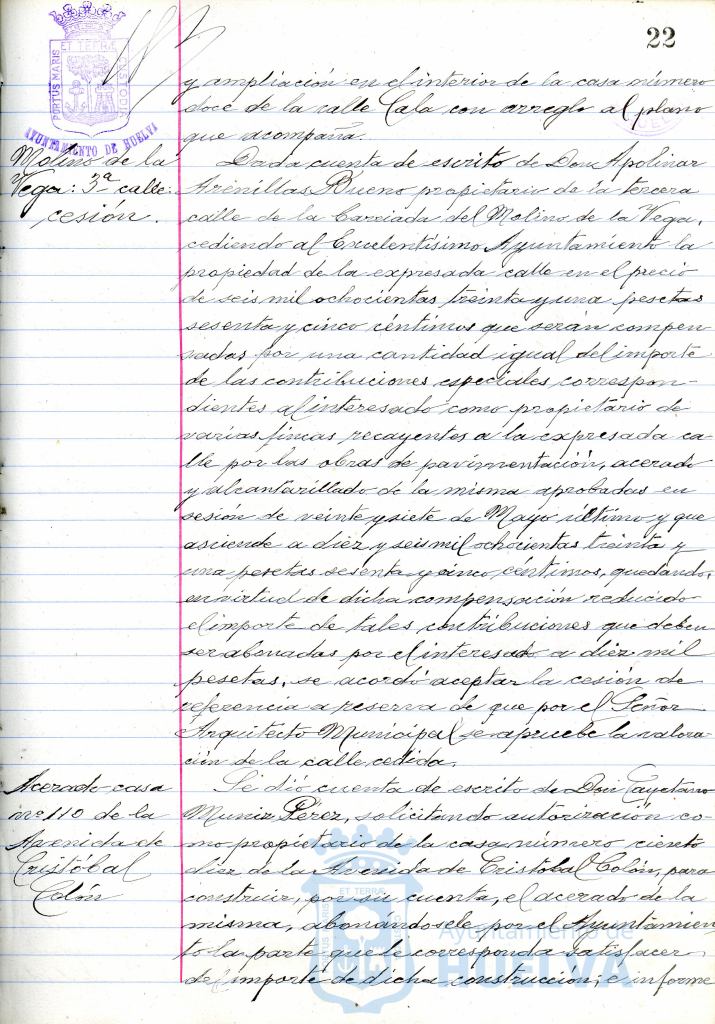 22
PORTUS MARIS
ET TERRÆ
CUSTODIA
AYUNTAMIENTO DE HUELVA
y ampliación en el interior de la casa número
doce de la calle Cala con arreglo al plano
que acompaña.
Molino de la
Vega: 3ª calle:
cesión.
Dada cuenta de escrito de Don Apolinar
Arenillas Bueno propietario de la tercera
calle de la Barriada del Molino de la Vega,
cediendo al Excelentísimo Ayuntamiento la
propiedad de la expresada calle en el precio
de seis mil ochocientas treinta y una pesetas
sesenta y cinco céntimos que serán compen
sadas por una cantidad igual del importe
de las contribuciones especiales correspon-
dientes al interesado como propietario de
varias fincas recayentes a la expresada ca
lle por las obras de pavimentación, acerado
y alcantarillado de la misma aprobadas en
sesión de veinte y siete de Mayo último y que
asciende a diez y seis mil ochocientas treinta y
una pesetas sesenta y cinco céntimos, quedando,
en virtud de dicha compensación reducido
el importe de tales contribuciones que deben
ser abonadas por el interesado a diez mil
pesetas, se acordó aceptar la cesión de
referencia a reserva de que por el Señor
Arquitecto Municipal se apruebe la valora-
ción de la calle cedida.
Acerado casa
nº 110 de la
Avenida de
Cristóbal
Colón
Se dió cuenta de escrito de Don Cayetano
Muniz Pérez, solicitando autorización co-
mo propietario de la casa número ciento
diez de la Avenida de Cristobal Colón, para
construir, por su cuenta, el acerado de la
misma, abonándosele por el Ayuntamien
to la parte que le corresponda satisfacer
del importe de dicha construcción, e informe
Ayuntamiento de
HUELVA